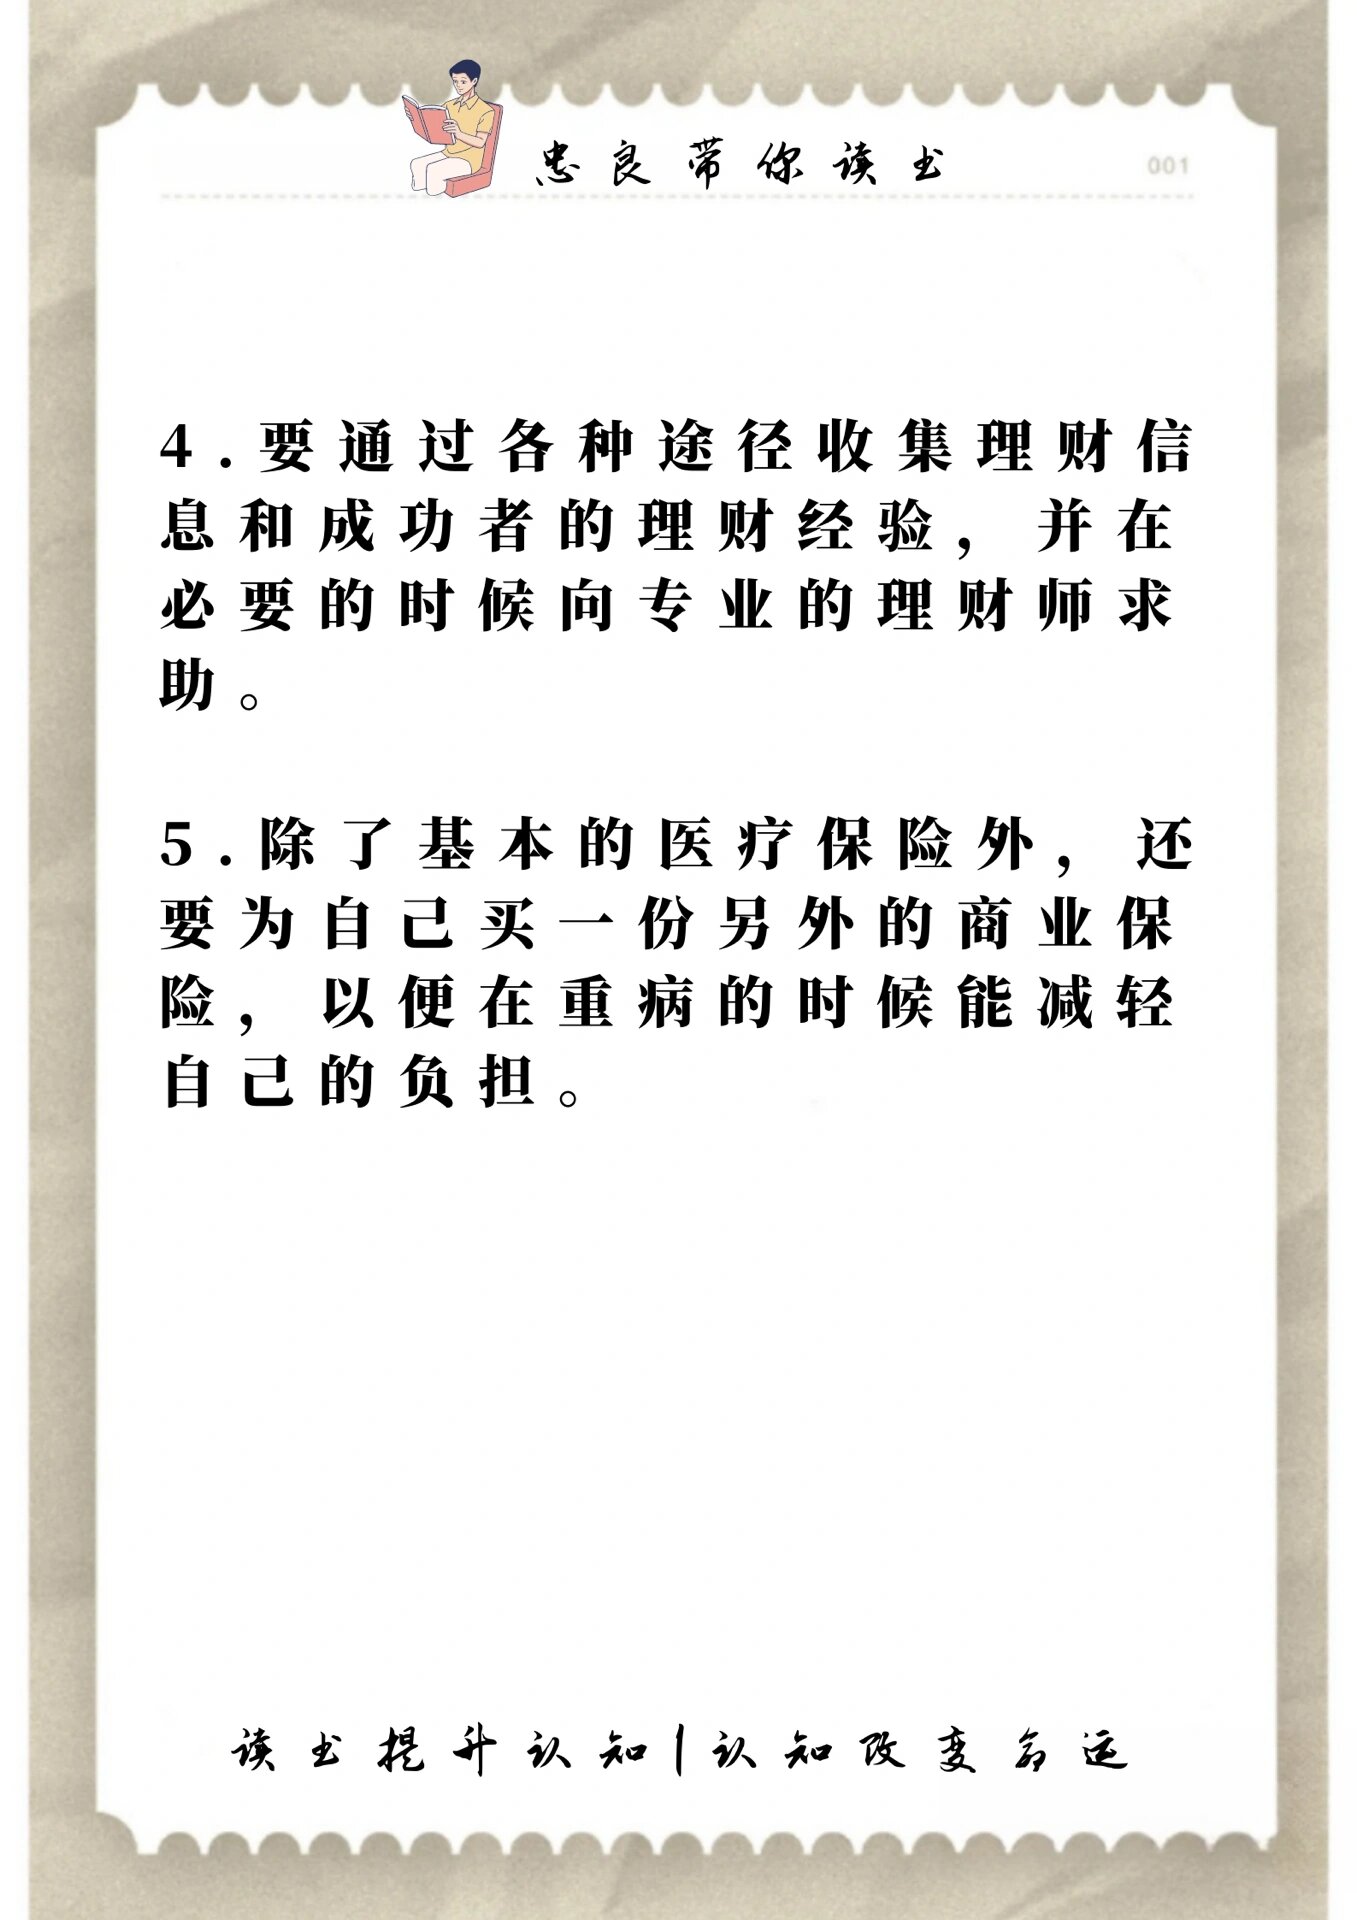 忠良带你读书
001
4.要通过各种途径收集理财信
息和成功者的理财经验，并在
必要的时候向专业的理财师求
助。
5.除了基本的医疗保险外，还
要为自己买一份另外的商业保
险，以便在重病的时候能减轻
自己的负担。
读书提升认知|认知改变命运